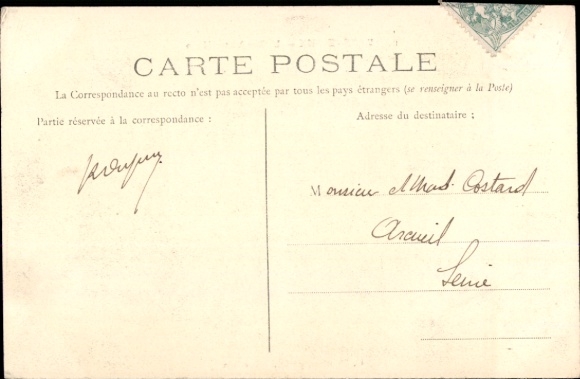 CARTE POSTALE
La Correspondance au recto n'est pas acceptée par tous les pays étrangers (se renseigner à la Poste)
Partie réservée à la correspondance :
Adresse du destinataire ;
Monsieur et Mad. Costard
Arcueil
Seine